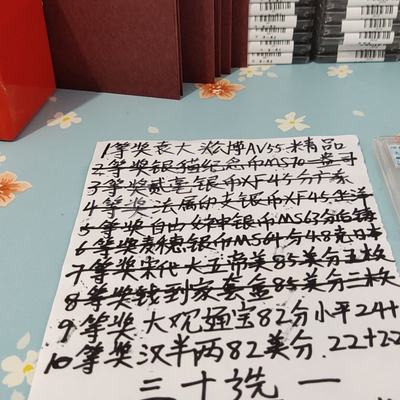 1等奖袁大 AU55精品
2等奖银猫纪念币MS70一盎司
3等奖戴莲银币XF45分方系
4等奖法属印支银币XF45坐洋
5等奖自由女神银币MS63分后铸
6等奖 德银币MS64分4.8克日本
7等奖宋代大五帝美85美分五枚
8等奖钱到家套盒85美分三枚
9等奖大观通宝82分小平24+
10等奖汉半两82美分.22+22
三十选一